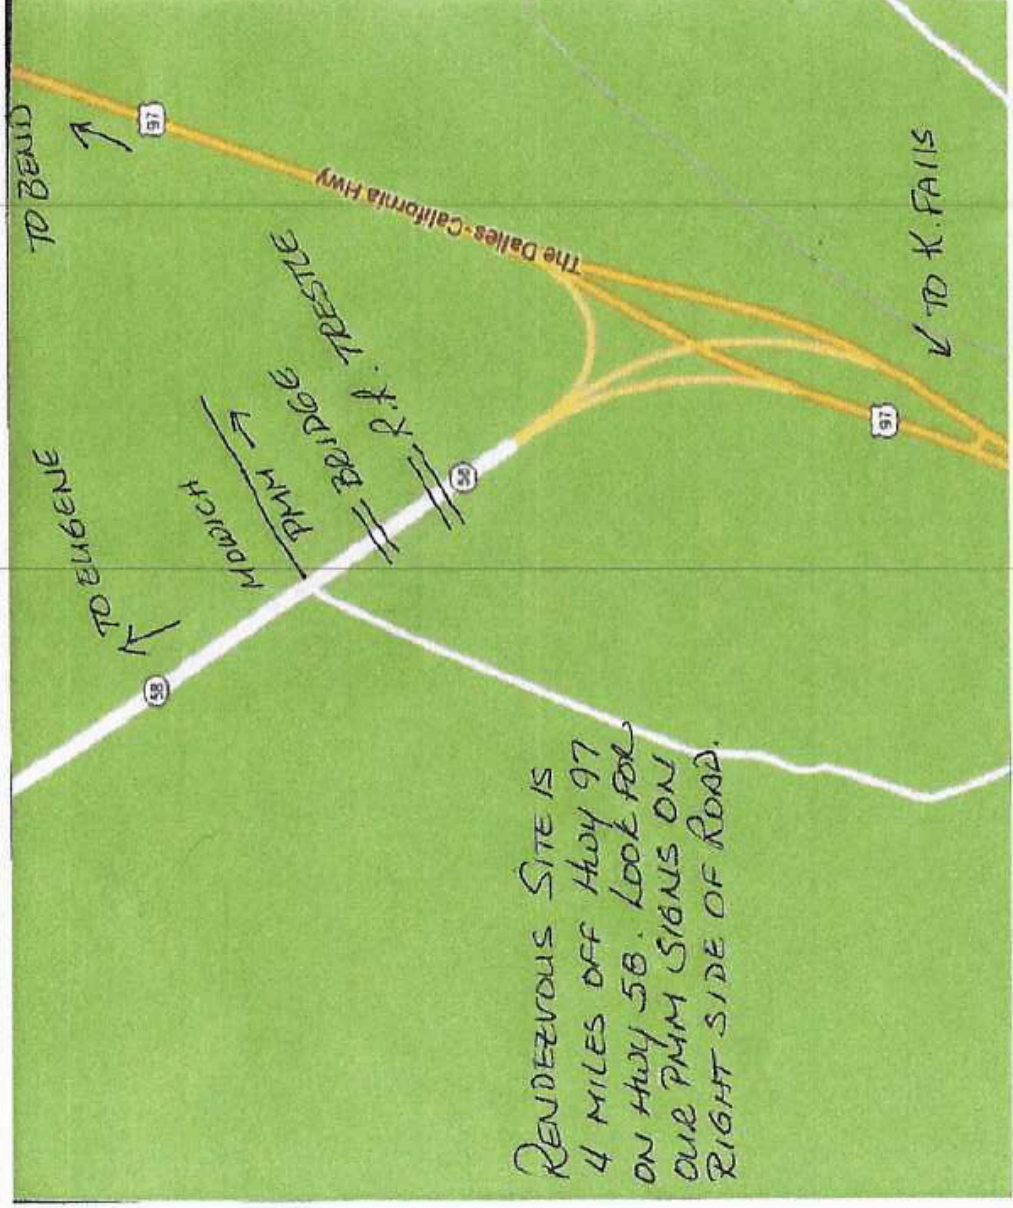 TO BEND
97
The Dalles-California Hwy
TO EUGENE
MOWICH
PMM →
BRIDGE
R.R. TRESTLE
58
58
97
TO K. FAllS
RENDEZVOUS SITE IS
4 MILES OFF HWY 97
ON HWY 58. LOOK FOR
OUR PMM SIGNS ON
RIGHT SIDE OF ROAD.